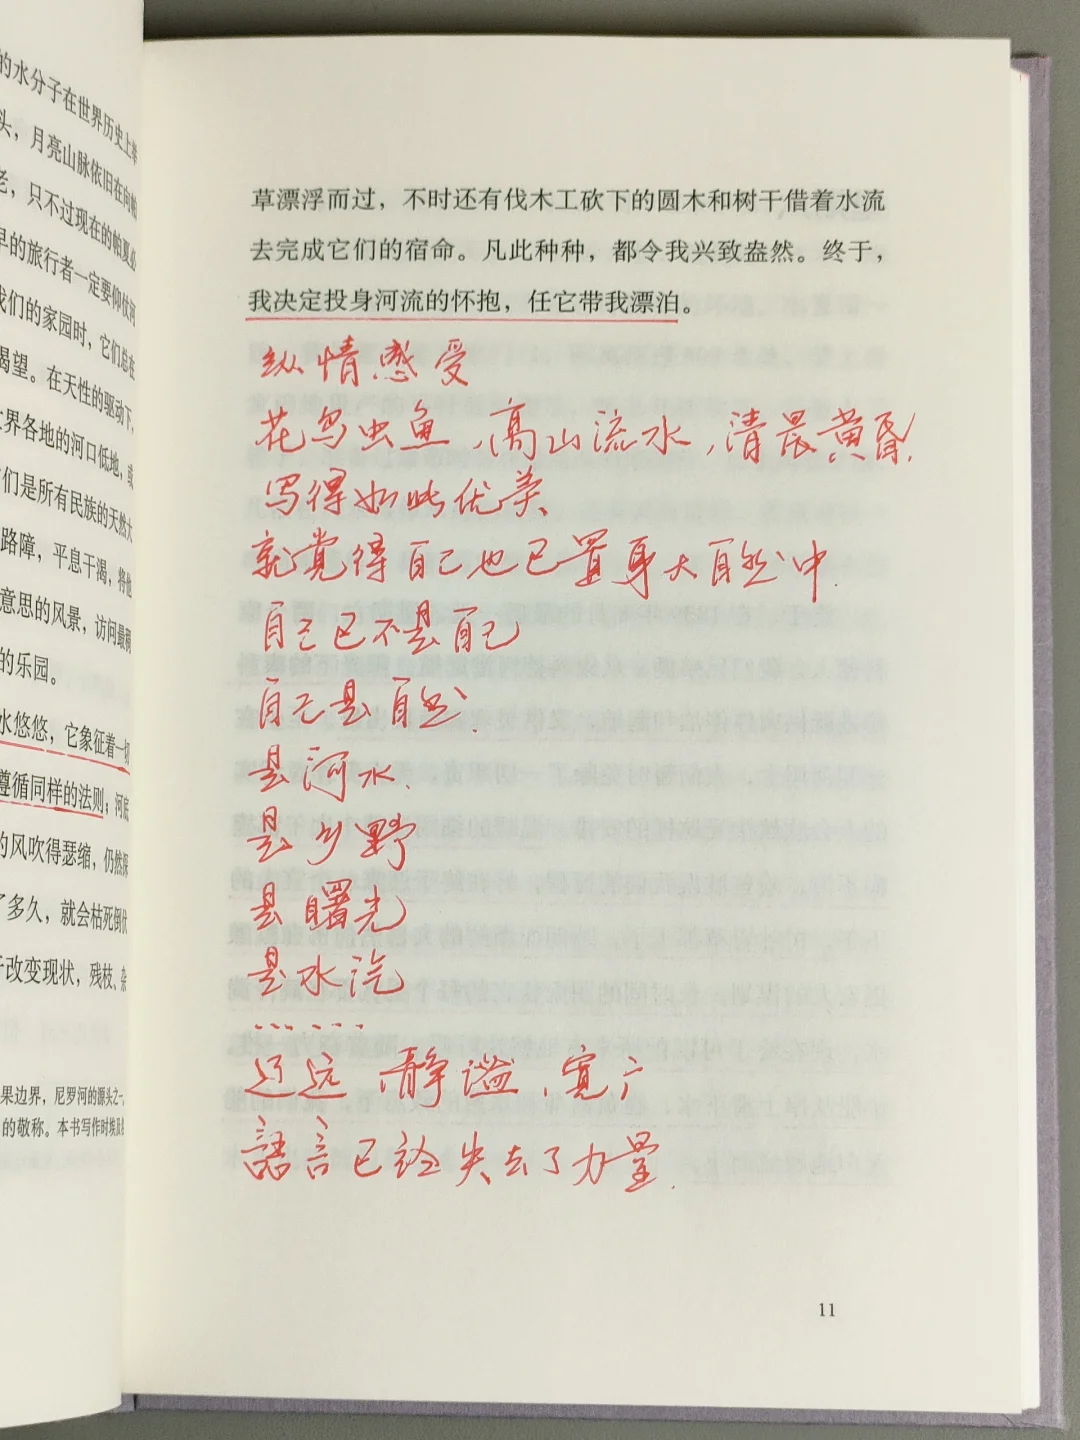 的水分子在世界历史上举
头，月亮山脉依旧在向帕
老，只不过现在的帕夏必
早的旅行者一定要仰仗河
我们的家园时，它们总在
渴望。在天性的驱动下，
世界各地的河口低地，或
它们是所有民族的天然大
路障，平息干渴，将他
意思的风景，访问最稠
的乐园。
水悠悠，它象征着一切
遵循同样的法则；河底
的风吹得瑟缩，仍然深
了多久，就会枯死倒伏
于改变现状，残枝、杂
果边界，尼罗河的源头之一。
的敬称。本书写作时埃及
草漂浮而过，不时还有伐木工砍下的圆木和树干借着水流
去完成它们的宿命。凡此种种，都令我兴致盎然。终于，
我决定投身河流的怀抱，任它带我漂泊。
纵情感受
花鸟虫鱼、高山流水，清晨黄昏
写得如此优美
就觉得自己也已置身大自然中.
自己已不是自己
自己是自然.
是河水.
是乡野
是曙光
是水汽
……
辽远 静谧、宽广
語言已经失去了力量.
11